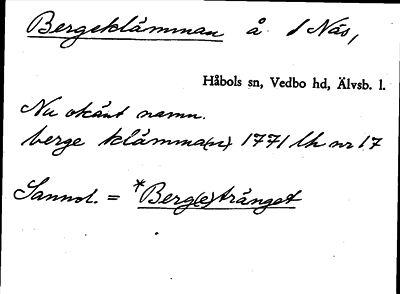 Bergeklämman å 1 Näs,
Håbols sn, Vedbo hd, Älvsb. l.
Nu okänt namn.
berge klämma(n) 1771 lh nr 17
Sannol. = *Berg(e)trånget